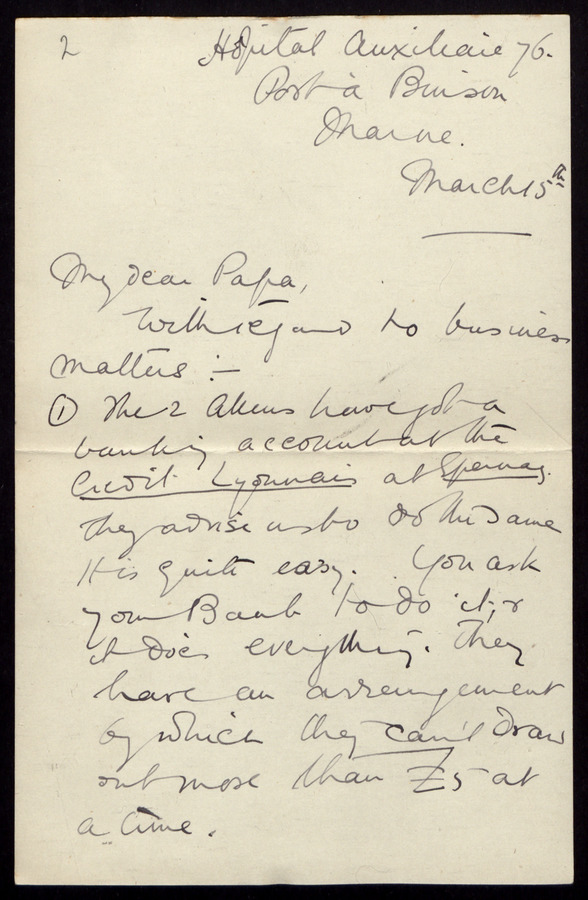 2
Hôpital Auxiliaire 76.
Port à Binson
Marne.
March 15th
My dear Papa,
With regard to business
matters :-
① The 2 Allens have got a
banking account at the
Credit Lyonnais at Epernay.
They advise us to do the same
It is quite easy. You ask
your Bank to do it, &
it does everything. They
have an arrangement
by which they can't draw
out more than £5 at
a time.